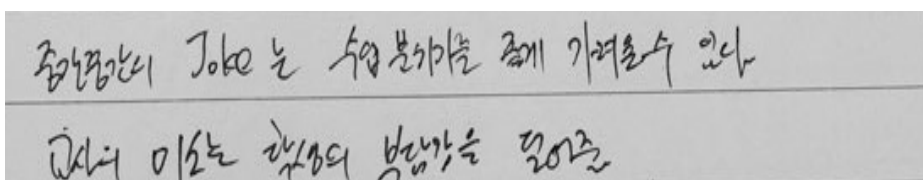 중간중간의 Joke는 수업 분위기를 좋게 가져올 수 있다.
교사의 미소는 학생의 부담감을 덜어준